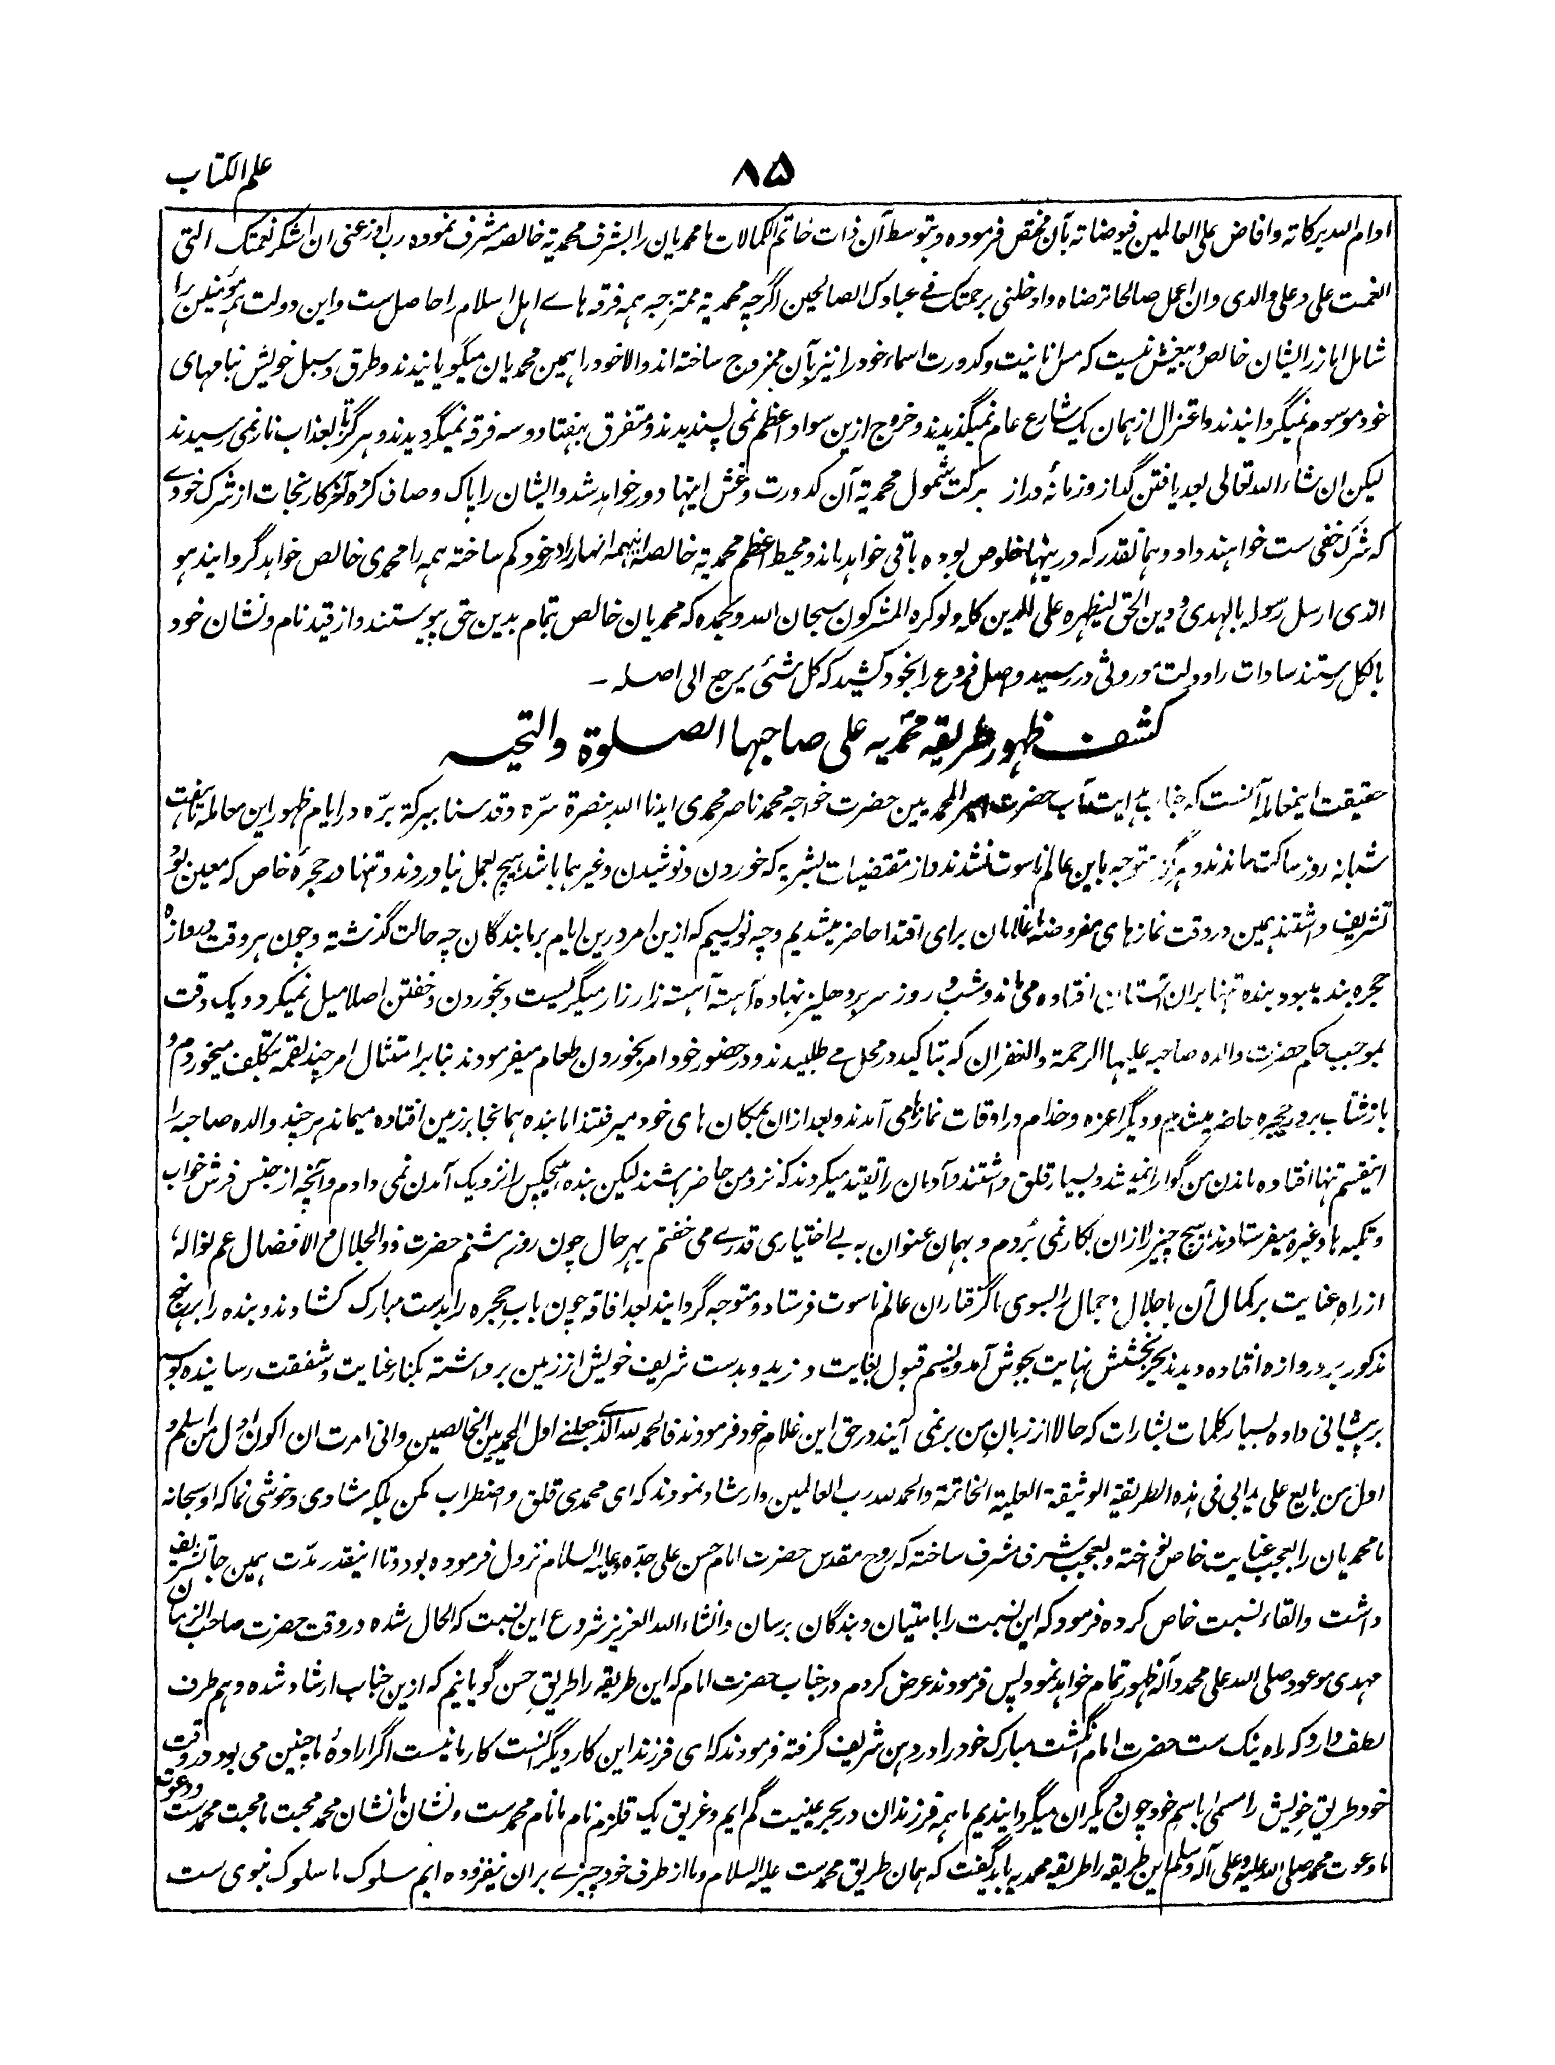 علم الکتاب
۸۵
ادام الله برکاته وافاض علی العالمین فیوضاته بآن مختص فرموده و بتوسط آن ذات خاتم الکمالات ما محمدیان را بشرف محمدیۃ خالصه مشرف نموده رب اوزعنی ان اشکر نعمتک التی
انعمت علی و علی والدی وان اعمل صالحا ترضاه وادخلنی برحمتک فی عبادک الصالحین اگرچه محمدیۃ ممتزجه همه فرقه هاے اهل اسلام را حاصل ست واین دولت همه مؤمنین را
شامل اما زر ایشان خالص و بیغش نیست که مس انانیت و کدورت اسماء خود را نیز بآن ممزوج ساخته اند والا خود را همین محمدیان میگویانیدند و طرق و سبل خویش بنامهای
خود موسوم نمیگردانیدند و اعتزال از همان یک شارع عام نمیگزیدند و خروج ازین سواد اعظم نمی پسندیدند و متفرق بهفتاد و سه فرقه نمیگردیدند و هرگز تا بعذاب نار نمی رسیدند
لیکن ان شاء الله تعالی بعد یافتن گداز و زمانۂ دراز برکت شمول محمدیۃ آن کدورت و غش اینها دور خواهد شد و ایشان را پاک و صاف کرده آخر کار نجات از شرک خودے
که شرک خفی ست خواهند داد و همانقدر که درینها خلوص بوده باقی خواهد ماند و محیط اعظم محمدیۃ خالصه اینهمه انهار را در خود گم ساخته همه را محمدی خالص خواهد گردانید هو
الذی ارسل رسوله بالهدی و دین الحق لیظهره علی الدین کله ولو کره المشرکون سبحان الله وبحمده که محمدیان خالص بتمام بدین حق پیوستند و از قید نام و نشان خود
بالکل رستند سادات را دولت موروثی در رسید و اصل فروع را بخود کشید که کل شئی یرجع الی اصله ـ
کشف ظهور طریقه محمدیه علی صاحبها الصلوة والتحیه
حقیقت اینمعامله آنست که جناب هدایت مآب حضرت امیر المحمدیین حضرت خواجه محمد ناصر محمدی ایدنا الله بنصرة سرّه و قدسنا ببرکة برّه در ایام ظهور این معامله تا هفت
شبانه روز ساکت ماندند و هرگز متوجه باین عالم ناسوت نشدند و از مقتضیات بشریه که خوردن و نوشیدن و غیرهما باشد هیچ بعمل نیاوردند و تنها در حجرۂ خاص که معین بود
تشریف داشتند همین در وقت نمازهای مفروضه ما غلامان برای اقتدا حاضر میشدیم و چه نویسیم که ازین امر درین ایام بر ما بندگان چه حالت گذشته و چون هر وقت دروازۂ
حجره بند می بود بنده تنها بران آستان افتاده می ماند و شب و روز سر بر دهلیز نهاده آهسته آهسته زار زار میگریست و بخوردن و خفتن اصلا میل نمیکرد و یک وقت
بموجب حکم حضرت والده صاحبه علیها الرحمة والغفران که بتاکید در محل مے طلبیدند و در حضور خود امر بخوردن طعام میفرمودند بنابر امتثال امر چند لقمه بتکلف میخوردم و
باز شتاب بر در حجره حاضر میشدم و دیگر اعزه و خدام در اوقات نمازها می آمدند و بعد ازان بمکان های خود میرفتند اما بنده همانجا بر زمین افتاده میماند هر چند والده صاحبه را
اینقسم تنها افتاده ماندن من گوارا نمیشد و بسیار قلق داشتند و آدمان را تقید میکردند که نزد من حاضر باشند لیکن بنده هیچکس را نزدیک آمدن نمی دادم و آنچه از جنس فرش خواب
و تکیه ها و غیره میفرستادند هیچ چیز را ازان بکار نمی بُردم و بهمان عنوان به بے اختیاری قدرے می خفتم بهر حال چون روز هشتم حضرت ذوالجلال والافضال عم نواله
از راه عنایت بر کمال آن با جلال و جمال را بسوی ما گرفتاران عالم ناسوت فرستاد و متوجه گردانید بعد افاقه چون باب حجره را بدست مبارک کشادند و بنده را بر نهج
مذکور بر دروازه افتاده دیدند بحر بخشش نهایت بجوش آمد و نسیم قبول بغایت وزید و بدست شریف خویش از زمین برداشته بکنار عنایت و شفقت رسانیده بوسه
بر پیشانی داده بسیار کلمات بشارات که حالا از زبان من بر نمی آیند در حق این غلام خود فرمودند فالحمد لله الذی جعلنی اول المحمدیین الخالصین وانی امرت ان اکون اول من اسلم و
اول من بایع علی یدابی فی هذه الطریقة الوثیقة العلیة الخاتمة والحمد لله رب العالمین وارشاد نمودند که ای محمدی قلق و اضطراب مکن بلکه شادی و خوشی نما که او سبحانه
ما محمدیان را بعجب عنایت خاص نواخته و بعجب شرف مشرف ساخته که روح مقدس حضرت امام حسن علی جده و علیه السلام نزول فرموده بود و تا اینقدر مدّت همین جا تشریف
داشت والقاء نسبت خاص کرده فرمود که این نسبت را بامتیان و بندگان برسان وانشاء الله العزیز شروع این نسبت که الحال شده در وقت حضرت صاحب الزمان
مهدی موعود صلی الله علی محمد وآله ظهور تمام خواهد نمود پس فرمودند عرض کردم در جناب حضرت امام که این طریقه را طریق حسن گویانیم که ازین جناب ارشاد شده و هم طرف
لطف دارد که راه نیک ست حضرت امام انگشت مبارک خود را در دهن شریف گرفته فرمودند که ای فرزند این کار دیگرانست کار ما نیست اگر ارادۂ ما چنین می بود در وقت
خود طریق خویش را مسمی باسم خود چون دیگران میگردانیدیم ما همه فرزندان در بحر عینیت گم ایم و غریق یک قلزم نام ما نام محمد ست و نشان ما نشان محمد محبت ما محبت محمد ست و دعوت
ما دعوت محمد صلی الله علیه و علی آله و سلم این طریقه را طریقه محمدیه باید گفت که همان طریق محمد ست علیه السلام و ما از طرف خود چیزے بران نیفزوده ایم سلوک ما سلوک نبوی ست